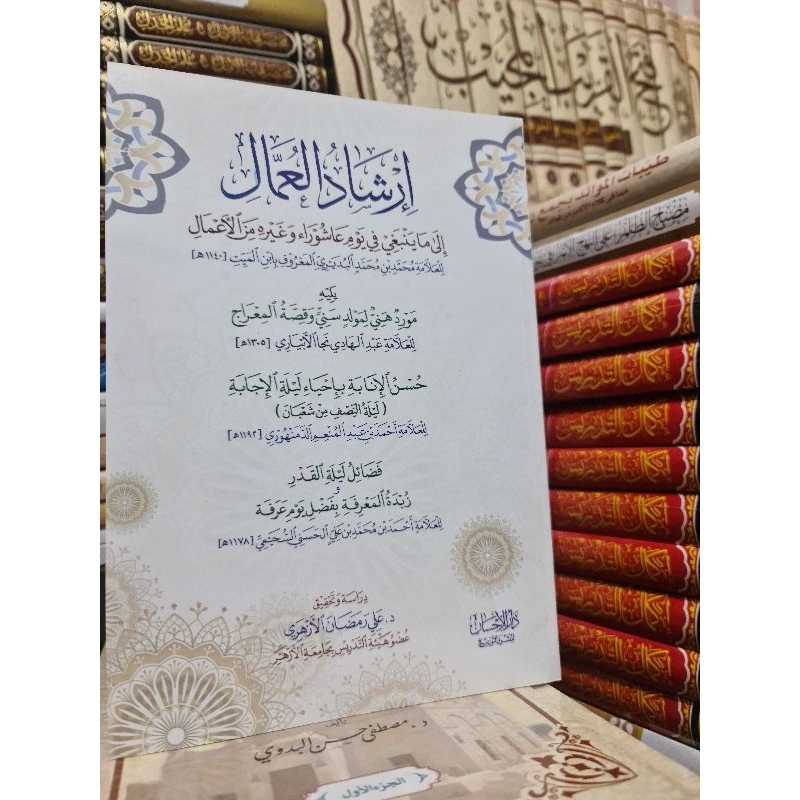 فتح القريب المجيب
إرشاد العمال
إلى ما ينبغي في يوم عاشوراء وغيره من الأعمال
للعلامة محمد بن محمد البديري المعروف بابن الميت [١١٤٠هـ]
يليه
مورد هني لمولد سني وقصة المعراج
للعلامة عبد الهادي نجا الأبياري [١٣٠٥هـ]
حسن الإنابة بإحياء ليلة الإجابة
(ليلة النصف من شعبان)
للعلامة أحمد بن عبد المنعم الدمنهوري [١١٩٢هـ]
فضائل ليلة القدر
و
زبدة المعرفة بفضل يوم عرفة
للعلامة أحمد بن محمد بن علي الحسني السحيمي [١١٧٨هـ]
دراسة وتحقيق
د. علي رمضان الأزهري
عضو هيئة التدريس بجامعة الأزهر
دار الإحسان
للنشر والتوزيع
تأليف
د. مصطفى حسن البدوي
الجزء الأول
إكمال التدريس
إكمال التدريس
إكمال التدريس
إكمال التدريس
إكمال التدريس
إكمال التدريس
إكمال التدريس
إكمال التدريس
إكمال التدريس